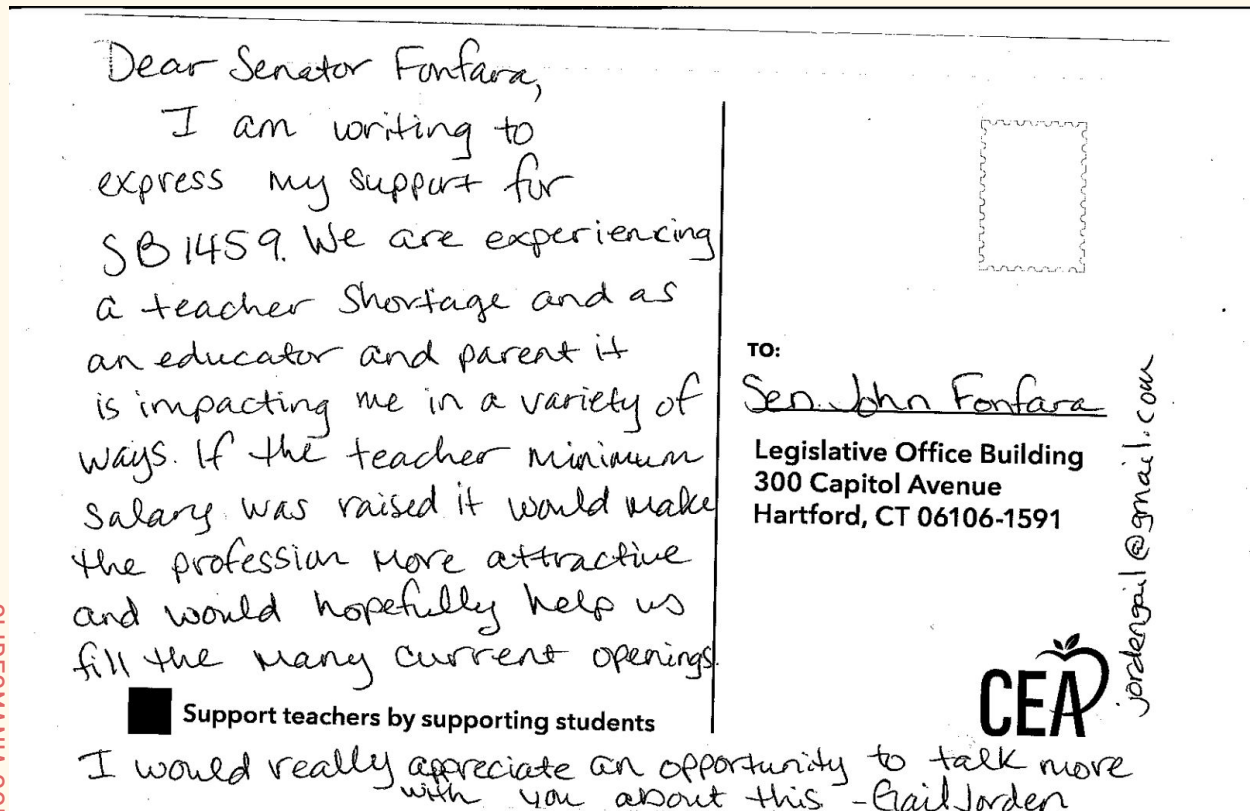 Dear Senator Fonfara,
I am writing to
express my support for
SB 1459. We are experiencing
a teacher shortage and as
an educator and parent it
is impacting me in a variety of
ways. If the teacher minimum
salary was raised it would make
the profession more attractive
and would hopefully help us
fill the many current openings.
Support teachers by supporting students
I would really appreciate an opportunity to talk more
with you about this - Gail Jorden
TO:
Sen. John Fonfara
Legislative Office Building
300 Capitol Avenue
Hartford, CT 06106-1591
CEA
jordengail@gmail.com